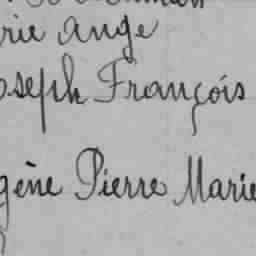 rie ange
oseph François
gène Pierre Marie